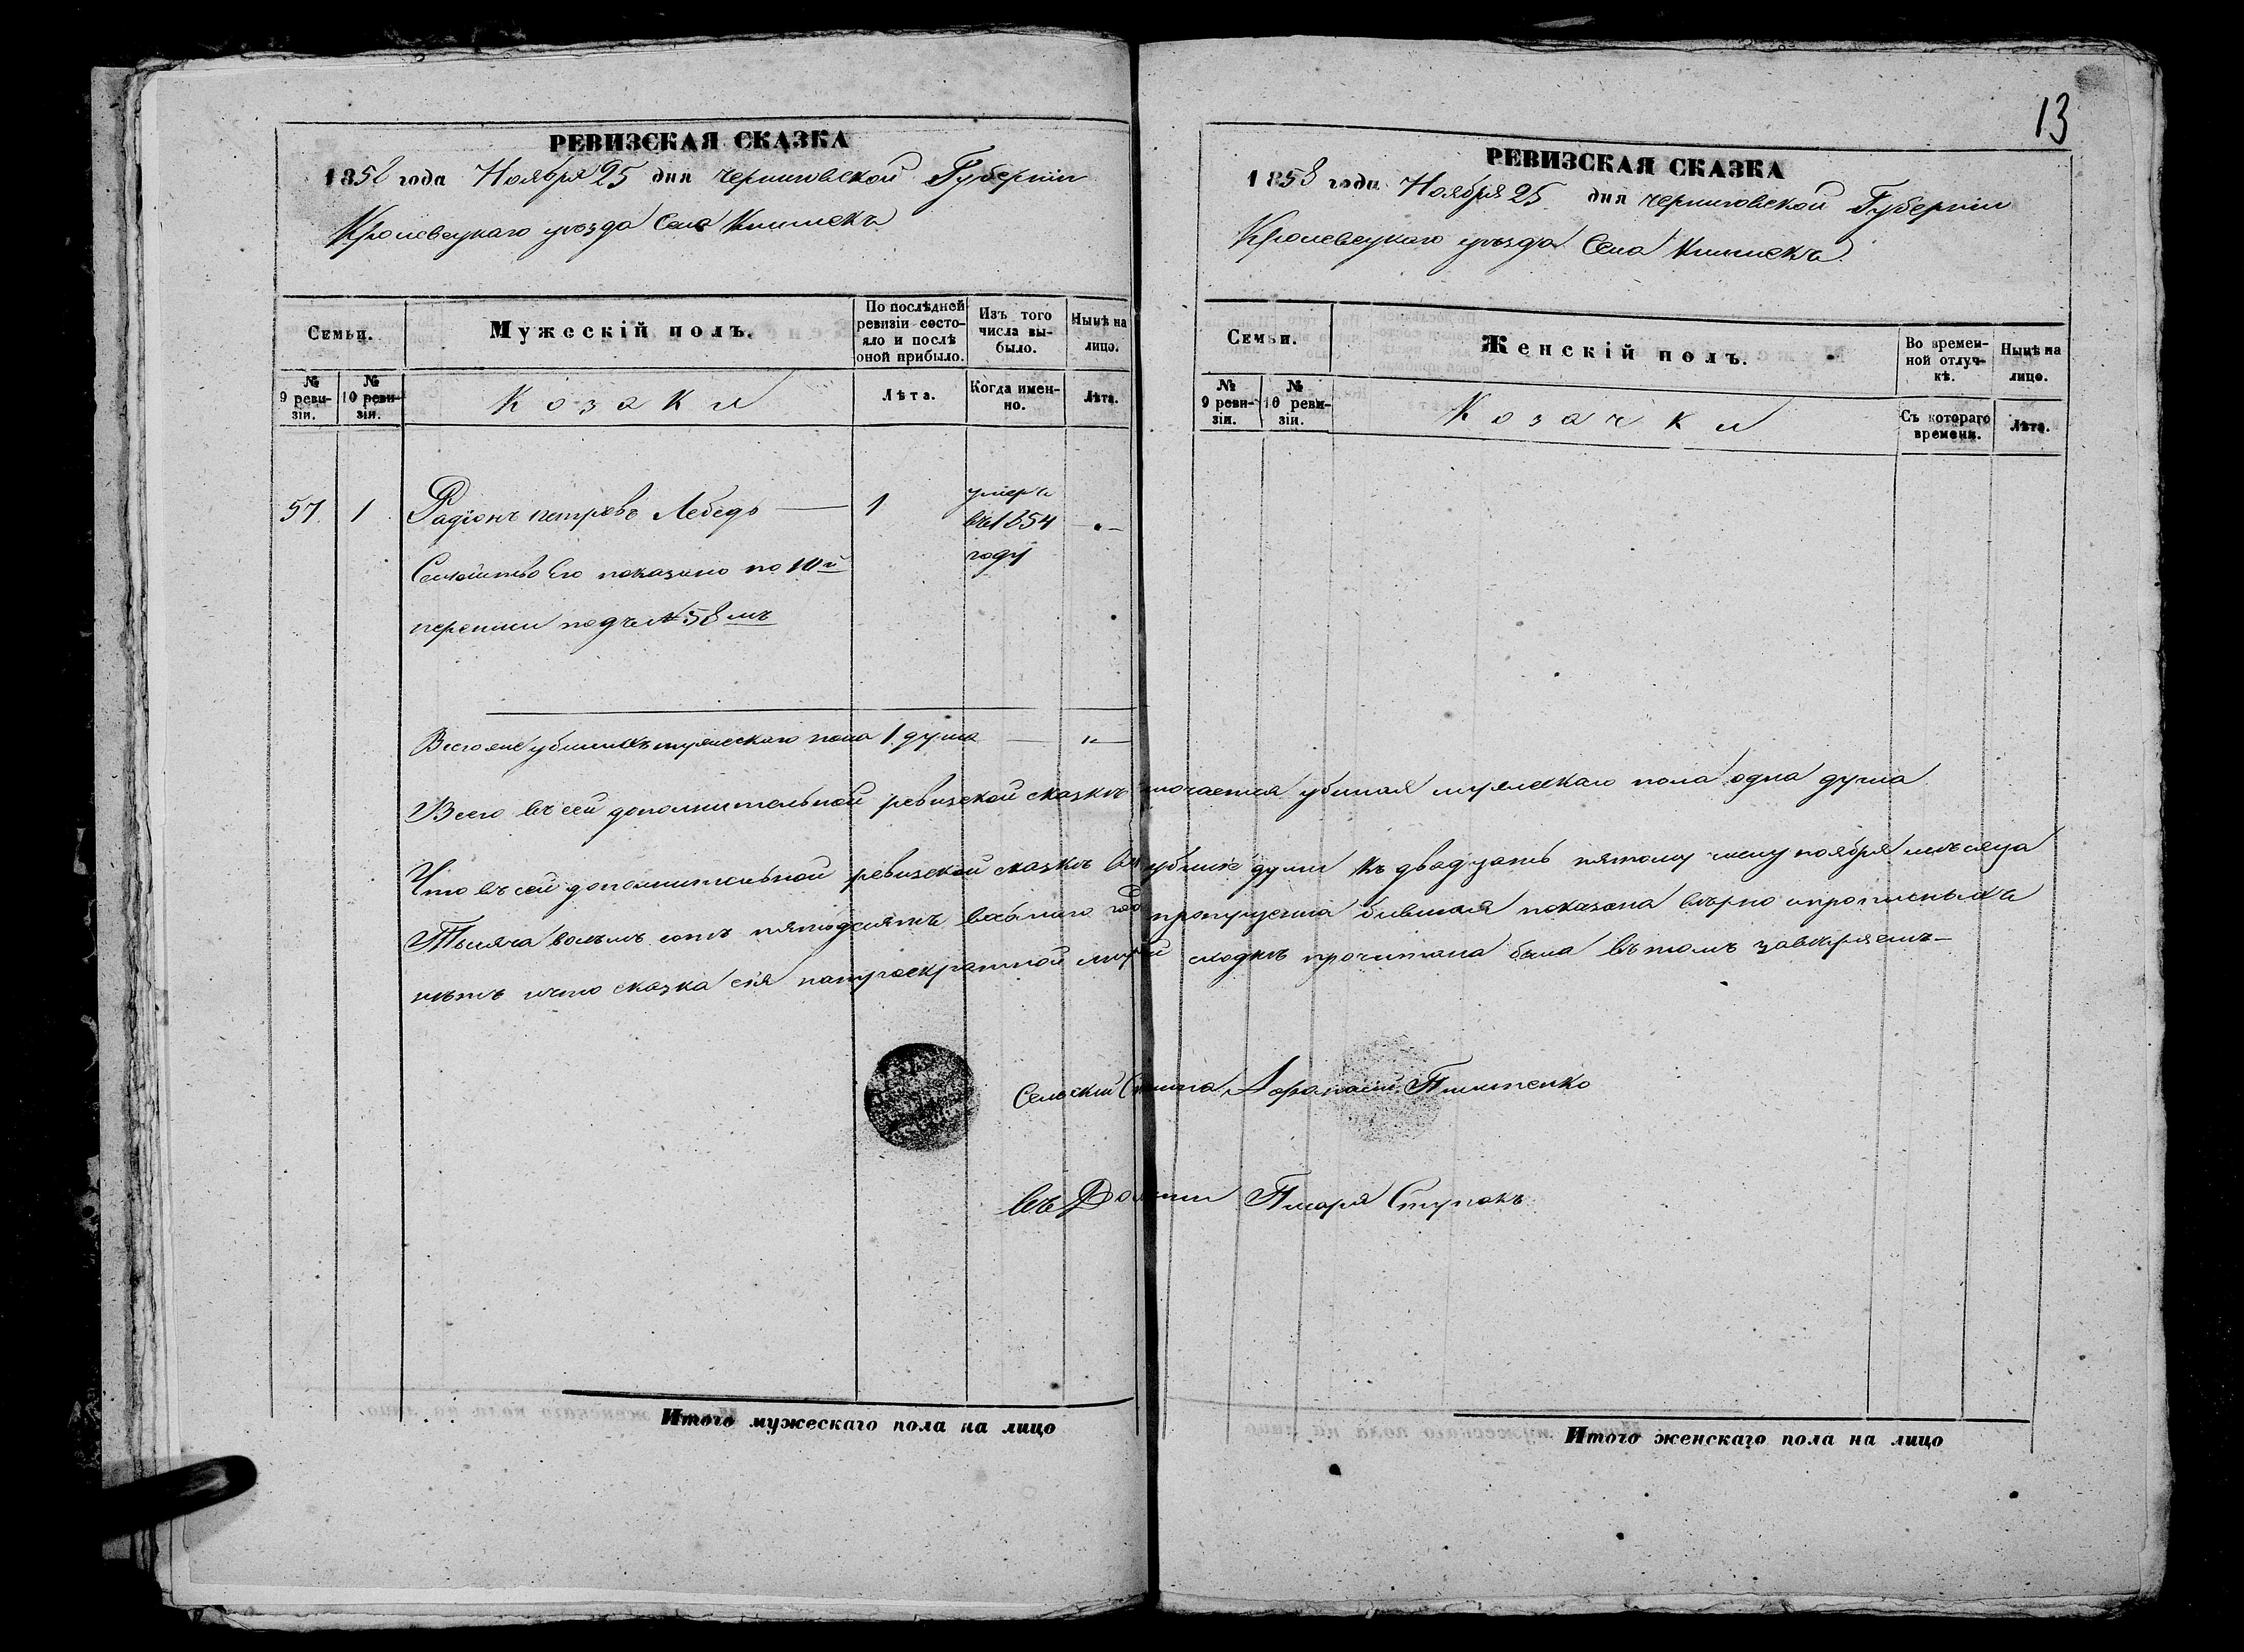 13
РЕВИЗСКАЯ СКАЗКА
1858 года Ноября 25 дня Черниговской Губернiи
Кролевецкаго уѣзда Села
Семьи.
Мужескій полъ.
По послѣдней ревизіи состо-
яло и послѣ оной прибыло.
Изъ того числа вы-
было.
Нынѣ на лицо.
№ 9 реви-
зіи.
№ 10 реви-
зіи.
Козаки
Лѣта.
Когда имен-
но.
Лѣта.
57. 1 Радіонъ Петровъ Лебедь — 1 умеръ въ 1854 году
Семейство Его показано по 10й
переписи подъ № 58 мъ
мужескаго пола 1 душа
Итого мужескаго пола на лицо
РЕВИЗСКАЯ СКАЗКА
1858 года Ноября 25 дня Черниговской Губерніи
Кролевецкаго уѣзда Села
Семьи.
Женскій полъ.
Во времен-
ной отлуч-
кѣ.
Нынѣ на лицо.
№ 9 реви-
зіи.
№ 10 реви-
зіи.
Козачки
Съ котораго времени.
Лѣта.
Всего въ сей дополнительной ревизской сказкѣ убылая мужескаго пола одна душа
Что въ сей дополнительной ревизской сказкѣ души къ двадцать пятому числу ноября мѣсяца
Тысяча восемъ сотъ пятьдесятъ пропущена бывшая показана вѣрно и прописныхъ
нѣтъ и что сказка сія сходкѣ прочитана была въ томъ завѣряемъ—
Сельскій Афанасій
Въ Должности Писаря Ступакъ
Итого женскаго пола на лицо